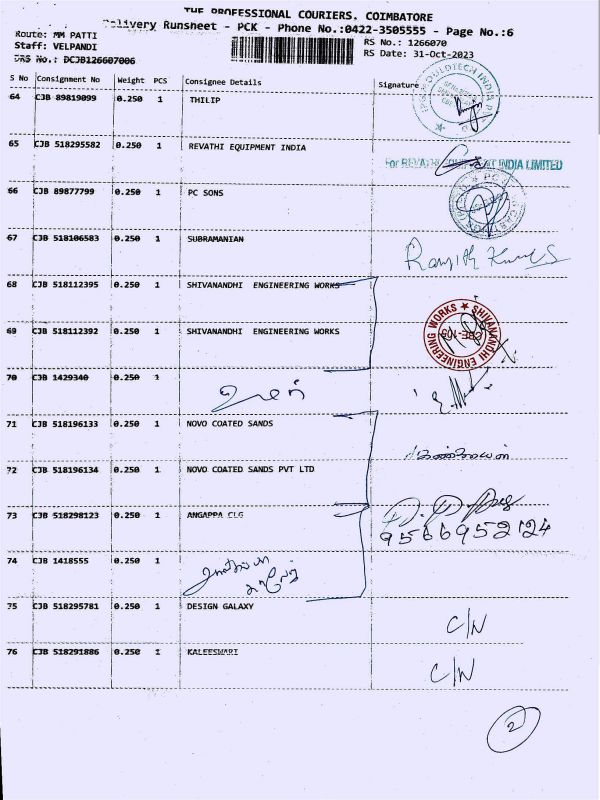 THE PROFESSIONAL COURIERS, COIMBATORE
Delivery Runsheet - PCK - Phone No.:0422-3505555 - Page No.:6
Route: MM PATTI
RS No.: 1266070
Staff: VELPANDI
RS Date: 31-Oct-2023
DRS No.: DCJB126607006
S No Consignment No Weight PCS Consignee Details Signature
64 CJB 89819099 0.250 1 THILIP
65 CJB 518295582 0.250 1 REVATHI EQUIPMENT INDIA
For REVATHI EQUIPMENT INDIA LIMITED
66 CJB 89877799 0.250 1 PC SONS
67 CJB 518106583 0.250 1 SUBRAMANIAN
Ranjith Kumar S
68 CJB 518112395 0.250 1 SHIVANANDHI ENGINEERING WORKS
69 CJB 518112392 0.250 1 SHIVANANDHI ENGINEERING WORKS
SHIVANANDHI ENGINEERING WORKS
70 CJB 1429340 0.250 1
71 CJB 518196133 0.250 1 NOVO COATED SANDS
72 CJB 518196134 0.250 1 NOVO COATED SANDS PVT LTD
73 CJB 518298123 0.250 1 ANGAPPA CLG
9566952124
74 CJB 1418555 0.250 1
75 CJB 518295781 0.250 1 DESIGN GALAXY
C/N
76 CJB 518291886 0.250 1 KALEESWARI
C/N
2